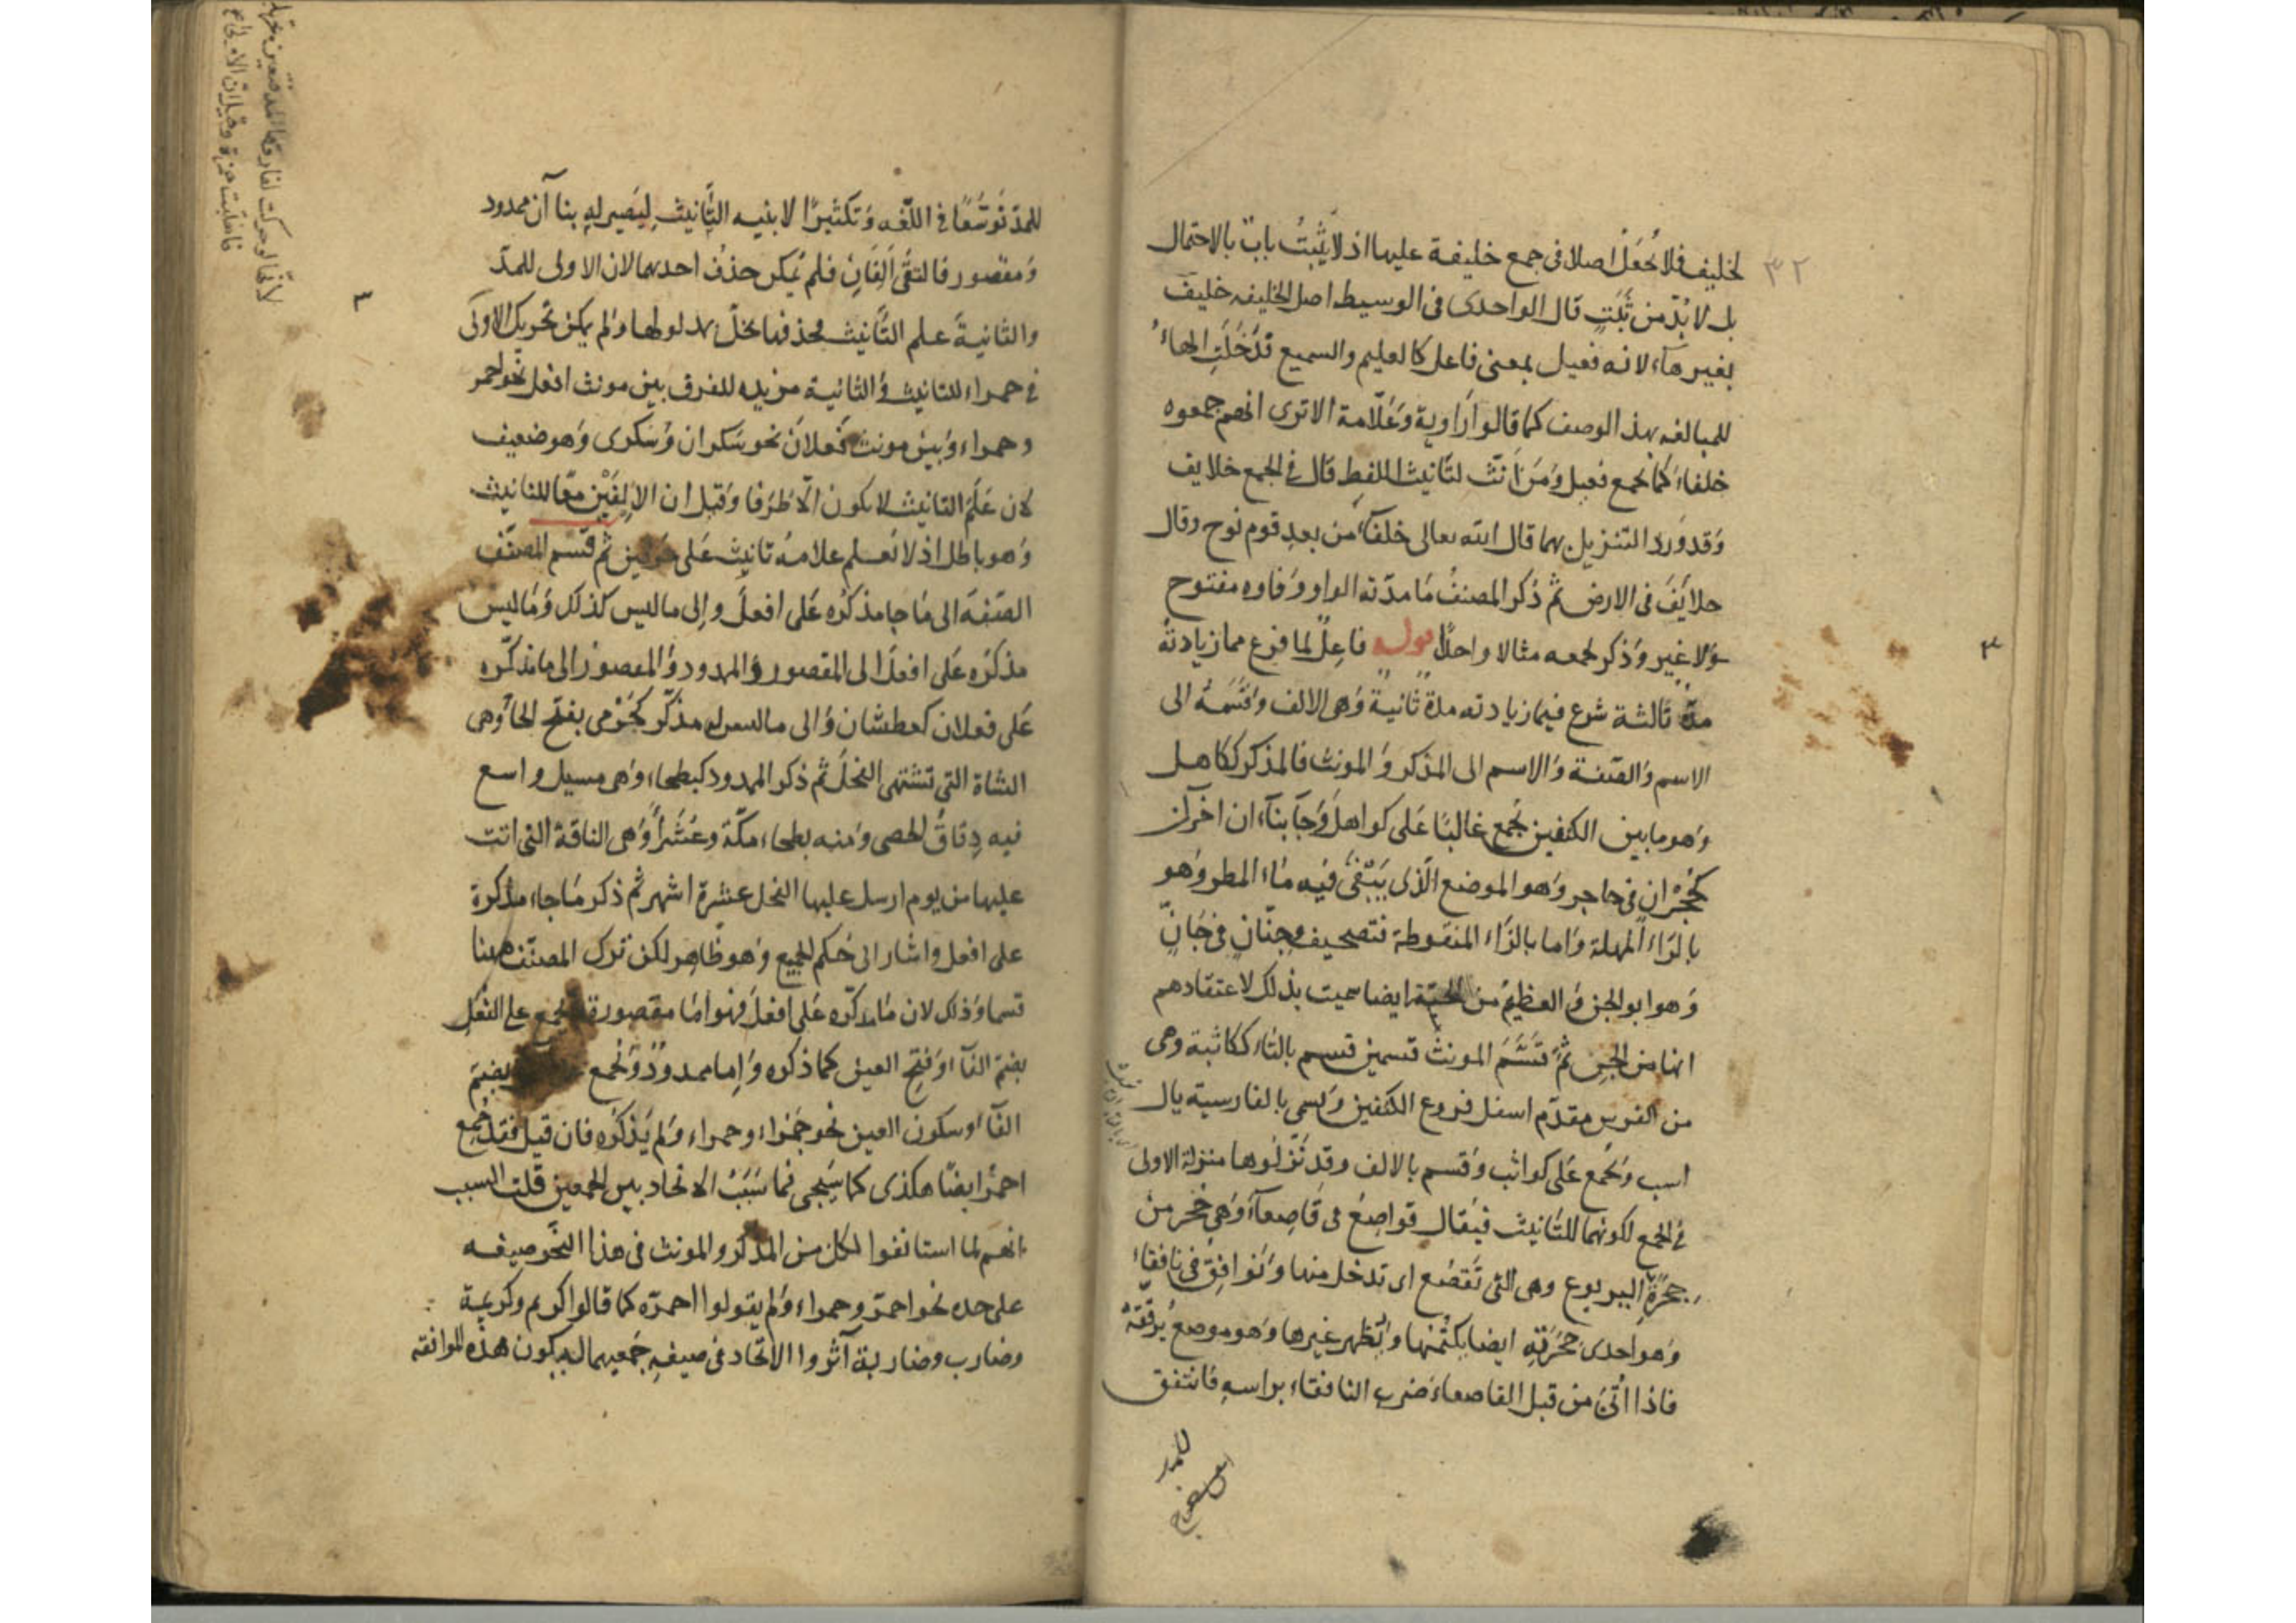 لخليف فلا تُجعَلُ اصلا فى جمع خليفة عليها اذ لا يَثْبتُ بابٌ بالاحتمال
بل لا بُدّ من ثَبَتٍ قال الواحدى فى الوسيط اصل الخليفه خليف
بغير هاء لانه فعيل بمعنى فاعل كالعليم والسميع فدَخَلَتِ الهاءُ
للمبالغه بهذ الوصف كما قالوا رَاوية وَعَلّامة الا ترى انهم جمعوه
خلفاء كما يجمع فعيل وَمَن أنّث لتَانيث اللفظِ قال فى الجمع خلايف
وَقد وَرد التنزيل بهما قال الله تعالى خلفآء من بعدِ قوم نوح وقال
خلايَفَ فى الارض ثم ذكر المصنفُ مَا مدّته الواو وَفاوه مفتوح
وَلا غير وَذكر لجمعه مثالا واحدًا قوله فاعِلٌ لما فرغ مما زيادتهُ
مدّة ثالثة شرع فيما زيادته مدة ثانية وَهى الالف وَقَسَمهُ الى
الاسم وَالصّفة وَالاسم الى المذكر وَالمونث فالمذكر ككاهل
وَهو ما بين الكتفين يجمع غالبًا عَلى كواهلَ وَجَآ بناء ان اخرآن
كحُجْرَان فى حاجر وَهو الموضع الّذى يَبْقَى فيه مَاء المطر وَهو
بالرّاء المهملة وَاما بالزّاء المنقوطة فتصحيف وجِنّانٍ فى جَانٍّ
وَهو ابو الجن وَالعظيمُ من الحيّة ايضا سميت بذلك لاعتقادهم
انها من الجنِ ثُمّ قَسَّمَ المونث قسمين قسم بالتاء ككاثبة وهى
من الفرس مقدّم اسفل فروع الكتفين وَيسمى بالفارسية يال
اسب وَيُجمع عَلى كواثب وَقسم بالالف وقد نَزّلوها منزلة الاولى
فى الجمع لكونهما للتَانيث فيقال قواصِعُ فى قَاصِعآءَ وَهِى جُحر من
جِحَرَةِ اليربوع وهى التى تَقصَع اى تدخل منها وَنَوَافِق فى نافقاء
وَهو احدى جِحَرَتِهِ ايضا يكتُمها وَيُظهر غيرها وَهو موضع يُرقّقهُ
فاذا أُتِىَ من قبل القاصعاء ضرب النافقاء براسهِ فانتفق
٣٢
٣
للمدّ تَوسّعًا فى اللّغه وَتكثيرًا لابنيه التَّانيث لِيَصير له بنا آن ممدود
وَمقصور فالتقَى أَلِفَانِ فلم يُمكن حذفُ احديهما لان الاولى للمدّ
والثانيةَ علم التّانيث فحذفها يخلّ بمدلولها وَلم يمكن تحريك الاولَى
فى حمراء للتانيث وَالثانية مزيده للفرق بين مونث افعل نحو احمر
وحمراء وَبين مونث فَعلانَ نحو سَكران وَسَكرى وَهو ضعيف
لان عَلَمَ التانيث لا يكون الّا طَرَفا وَقيل ان الاَلِفَيْن معًا للتانيث
وَهو باطل اذ لا نعلم علامهُ تانيث عَلى حرفين ثم قسم المصنّف
الصّفة الى مَا جا مذكرُه عَلى افعلَ وإلى ما ليس كذلكَ وَمَا ليس
مذكرُه عَلى افعلَ الى المقصور وَالممدود وَالمقصورَ الى ما مذكّره
عَلى فعلان كعطشان وَالى ما ليس له مذكّر كَحَرْمى بفتح الحآ وَهى
الشاة التى تشتهى الفحلَ ثم ذكر الممدود كبطحاء وَهى مسيل واسع
فيه دِقاقُ الحصى وَمنه بطحاء مكّة وعُشَرَاءَ وَهى الناقة التى اتت
عليها من يوم ارسل عليها الفحل عشرة اشهر ثم ذكر مَا جاء مذكره
على افعل واشار الى حُكم الجميع وَهو ظاهر لكن ترك المصنّف ههنا
قسما وَذلك لان مَا مذكّره عَلى افعلَ فهو امّا مقصورة فيجمع على الفُعَلِ
بضم الفآ وَفتح العين كما ذكره وَإما ممدودٌ وَيُجمع بضم
الفآ وسكون العين نحو حَمْراء وحمراء وَلم يَذكُره فان قيل فقد جُمع
احمرُ ايضًا هكذى كما سَيَجى فما سَبَبُ الاتحاد بين الجمعين قلت السبب
انهم لما استانفوا لكل من المذكر والمونث فى هذا النَحو صيغه
على حده نحو احمرَ وحمراء وَلم يقولوا احمرَه كما قالوا كريم وكريمة
وضارب وضاربة آثروا الاتحاد فى صيغهِ جَمعيهما ليكون هذه الموافقه
٣